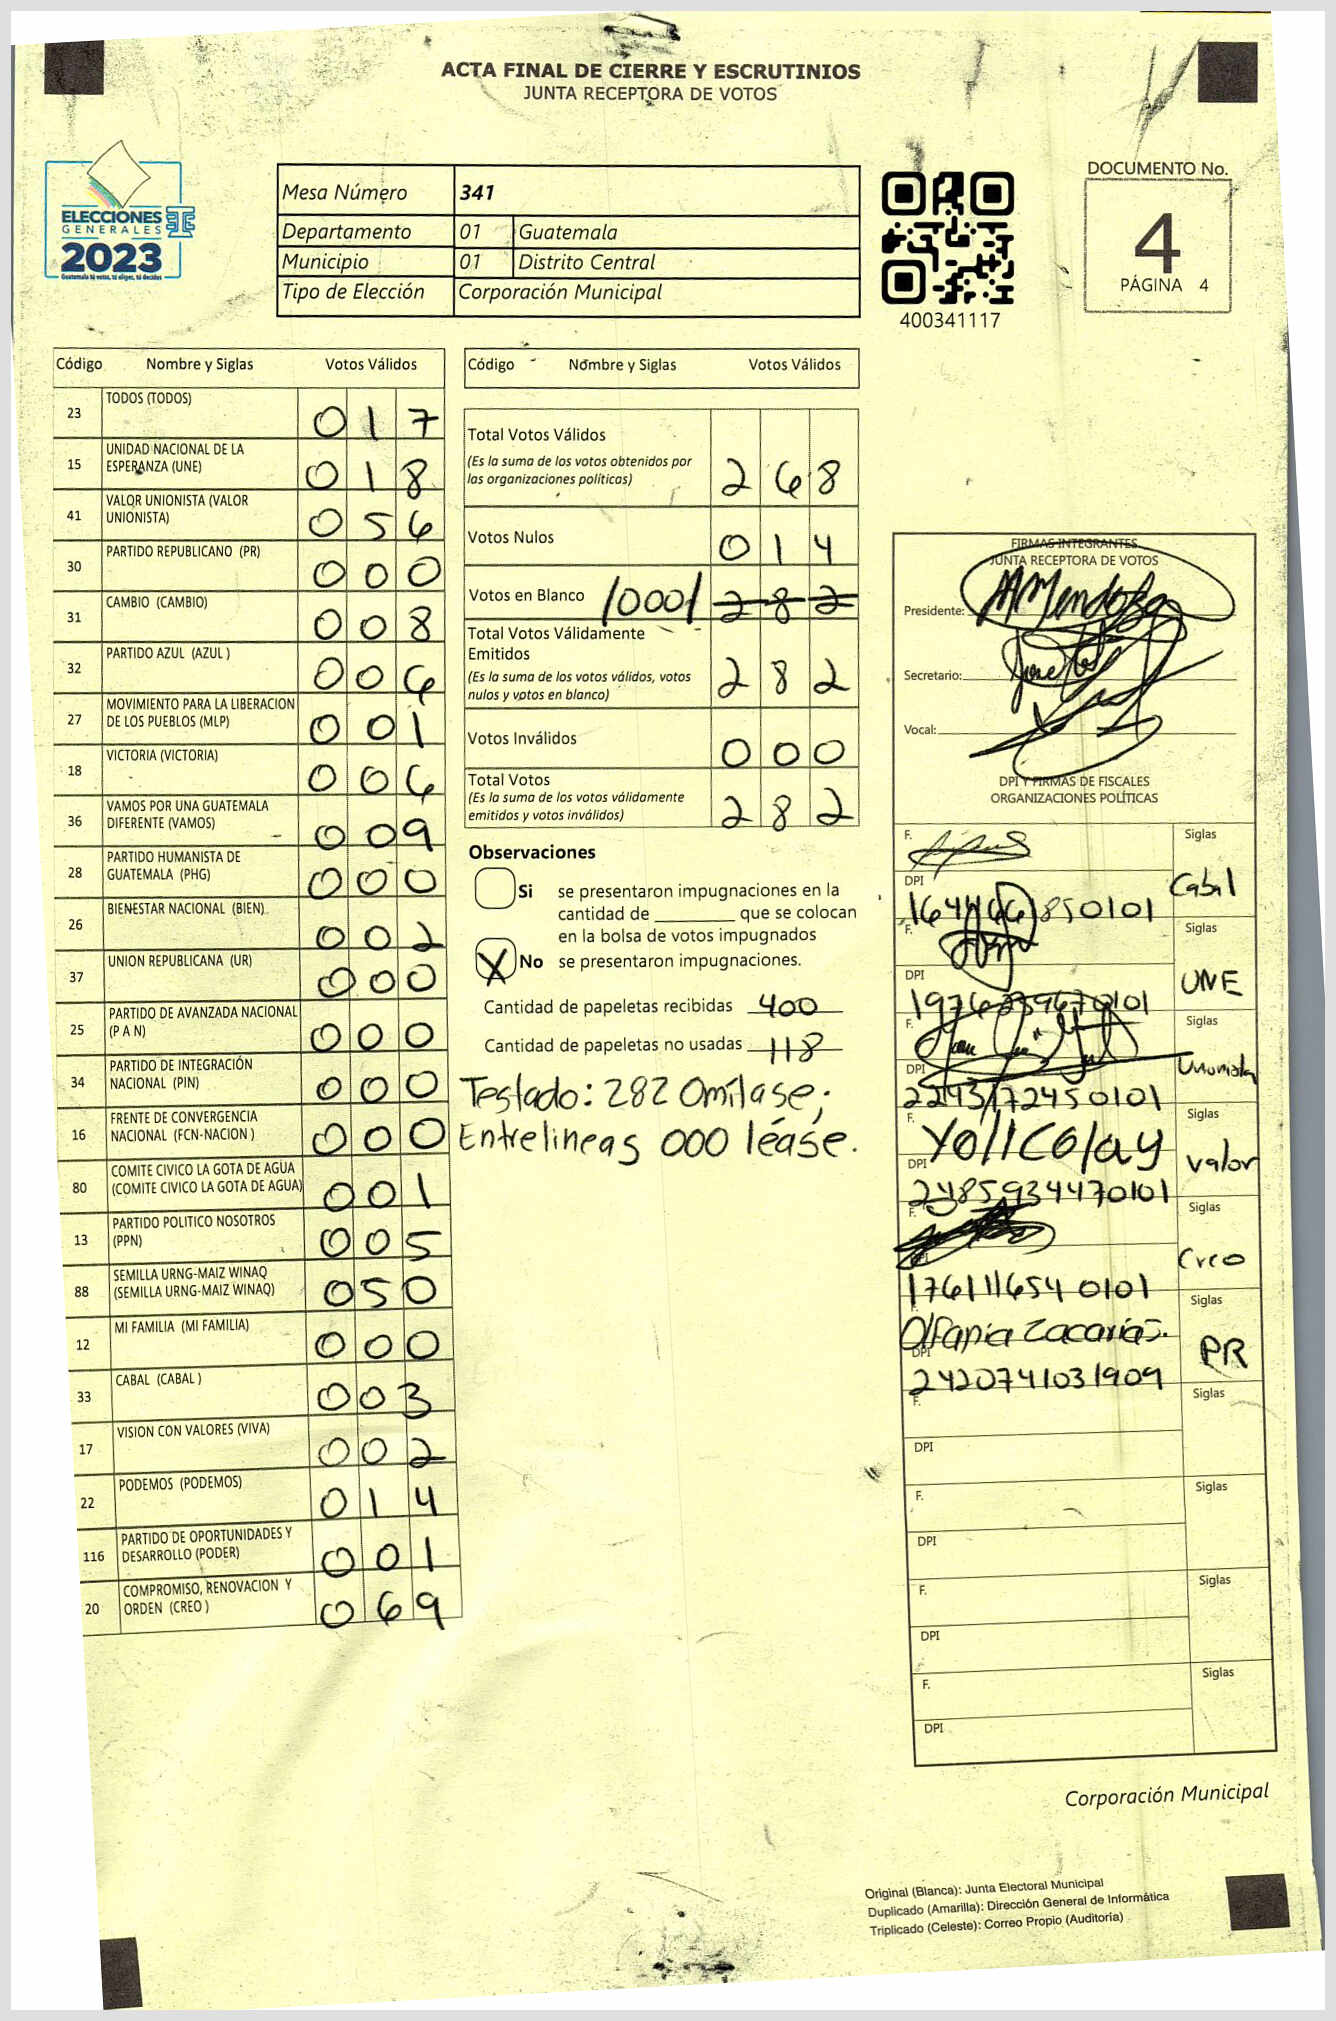 ACTA FINAL DE CIERRE Y ESCRUTINIOS
JUNTA RECEPTORA DE VOTOS
ELECCIONES
GENERALES
2023
Guatemala tú votas, tú eliges, tú decides
Mesa Número 341
Departamento 01 Guatemala
Municipio 01 Distrito Central
Tipo de Elección Corporación Municipal
400341117
DOCUMENTO No.
4
PÁGINA 4
Código Nombre y Siglas Votos Válidos
23 TODOS (TODOS) 0 1 7
15 UNIDAD NACIONAL DE LA ESPERANZA (UNE) 0 1 8
41 VALOR UNIONISTA (VALOR UNIONISTA) 0 5 6
30 PARTIDO REPUBLICANO (PR) 0 0 0
31 CAMBIO (CAMBIO) 0 0 8
32 PARTIDO AZUL (AZUL ) 0 0 6
27 MOVIMIENTO PARA LA LIBERACION DE LOS PUEBLOS (MLP) 0 0 1
18 VICTORIA (VICTORIA) 0 0 6
36 VAMOS POR UNA GUATEMALA DIFERENTE (VAMOS) 0 0 9
28 PARTIDO HUMANISTA DE GUATEMALA (PHG) 0 0 0
26 BIENESTAR NACIONAL (BIEN) 0 0 2
37 UNION REPUBLICANA (UR) 0 0 0
25 PARTIDO DE AVANZADA NACIONAL (P A N) 0 0 0
34 PARTIDO DE INTEGRACIÓN NACIONAL (PIN) 0 0 0
16 FRENTE DE CONVERGENCIA NACIONAL (FCN-NACION ) 0 0 0
80 COMITE CIVICO LA GOTA DE AGUA (COMITE CIVICO LA GOTA DE AGUA) 0 0 1
13 PARTIDO POLITICO NOSOTROS (PPN) 0 0 5
88 SEMILLA URNG-MAIZ WINAQ (SEMILLA URNG-MAIZ WINAQ) 0 5 0
12 MI FAMILIA (MI FAMILIA) 0 0 0
33 CABAL (CABAL ) 0 0 3
17 VISION CON VALORES (VIVA) 0 0 2
22 PODEMOS (PODEMOS) 0 1 4
116 PARTIDO DE OPORTUNIDADES Y DESARROLLO (PODER) 0 0 1
20 COMPROMISO, RENOVACION Y ORDEN (CREO ) 0 6 9
Código Nombre y Siglas Votos Válidos
Total Votos Válidos
(Es la suma de los votos obtenidos por
las organizaciones políticas) 2 6 8
Votos Nulos 0 1 4
Votos en Blanco /000/ 2 8 2
Total Votos Válidamente
Emitidos
(Es la suma de los votos válidos, votos
nulos y votos en blanco) 2 8 2
Votos Inválidos 0 0 0
Total Votos
(Es la suma de los votos válidamente
emitidos y votos inválidos) 2 8 2
Observaciones
Si se presentaron impugnaciones en la
cantidad de ________ que se colocan
en la bolsa de votos impugnados
X No se presentaron impugnaciones.
Cantidad de papeletas recibidas 400
Cantidad de papeletas no usadas 118
Testado: 282 Omitase;
Entrelineas 000 léase.
FIRMAS INTEGRANTES
JUNTA RECEPTORA DE VOTOS
Presidente: AMendoza
Secretario:
Vocal:
DPI Y FIRMAS DE FISCALES
ORGANIZACIONES POLÍTICAS
F. Siglas
DPI Cabal
F. Siglas
DPI UNE
F. Siglas
DPI Unionista
2243172450101
F. Siglas
DPI valor
2485934470101
F. Siglas
DPI Creo
1761116540101
Siglas
Olfania Zacarias.
DPI PR
2420741031909
F. Siglas
DPI
F. Siglas
DPI
F. Siglas
DPI
F. Siglas
DPI
Corporación Municipal
Original (Blanca): Junta Electoral Municipal
Duplicado (Amarilla): Dirección General de Informática
Triplicado (Celeste): Correo Propio (Auditoría)